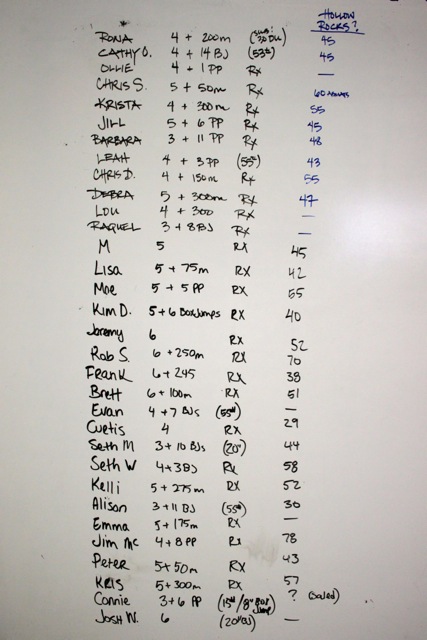 HOLLOW
ROCKS?
RONA 4 + 200m 45
CATHY O. 4 + 14 BJ (53#) 45
OLLIE 4 + 1 PP RX —
CHRIS S. 5 + 50m RX 60
KRISTA 4 + 300m RX 55
JILL 5 + 6 PP RX 45
BARBARA 3 + 11 PP RX 48
LEAH 4 + 3 PP (55#) 43
CHRIS D. 4 + 150m RX 55
DEBRA 5 + 300m RX 47
LOU 4 + 300 RX —
RAQUEL 3 + 8 BJ RX —
M 5 RX 45
Lisa 5 + 75m RX 42
Moe 5 + 5 PP RX 55
Kim D. 5 + 6 Box Jumps RX 40
Jeremy 6 RX 52
Rob S. 6 + 250m RX 70
Frank 6 + 245 RX 38
Brett 6 + 100m RX 51
Evan 4 + 7 BJs (55#) —
Curtis 4 RX 29
Seth M 3 + 10 BJs (20") 44
Seth W 4 + 3 BJ RX 58
Kelli 5 + 275m RX 52
Alison 3 + 11 BJ (55#) 30
Emma 5 + 175m RX —
Jim Mc 4 + 8 PP RX 78
Peter 5 + 50m RX 43
KRIS 5 + 300m RX 57
Connie 3 + 6 PP (15#/8" Box Jump) ?
Josh W. 6 (20" BJ) —